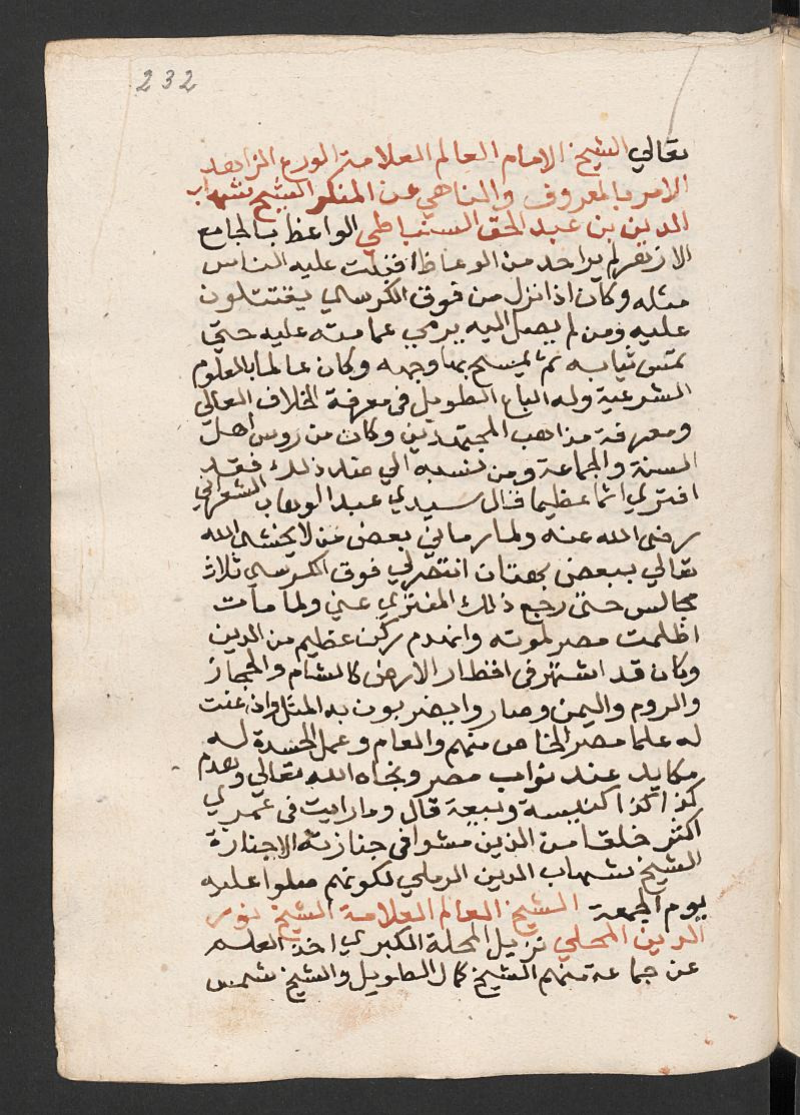 232
تعالي الشيخ الامام العالم العلامة الورع الزاهد
الامر بالمعروف والناهي عن المنكر الشيخ شهاب
الدين بن عبد الحق السنباطي الواعظ بالجامع
الازهر لم ير احد من الوعاظ اقبلت عليه الناس
مثله وكان اذا نزل من فوق الكرسي يقتتلون
عليه ومن لم يصل اليه يرمي عمامته عليه حتي
تمس ثيابه ثم يمسح بها وجهه وكان عالما بالعلوم
الشرعية وله الباع الطويل في معرفة الخلاف العالي
ومعرفة مذاهب المجتهدين وكان من روس اهل
السنة والجماعة ومن نسبه الي ضد ذلك فقد
افتري اثما عظيما قال سيدي عبد الوهاب الشعراني
رضى الله عنه ولما رماني بعض من لا يخشى الله
تعالي ببعض بهتان انتصر لي فوق الكرسي ثلاث
مجالس حتى رجع ذلك المفتري عني ولما مات
اظلمت مصر لموته وانهدم ركن عظيم من الدين
وكان قد اشتهر في اقطار الارض كالشام والحجاز
والروم واليمن وصاروا يضربون به المثل واذعنت
له علما مصر الخاص منهم والعام وعمل الحسدة له
مكايد عند نواب مصر ونجاه الله تعالي وهدم
كذا كذا كنيسة وبيعة قال وما رايت في عمري
اكثر خلقا من الذين مشوا في جنازته الا جنازة
الشيخ شهاب الدين الرملي لكونهم صلوا عليه
يوم الجمعة الشيخ العالم العلامة الشيخ نور
الدين المحلي نزيل المحلة الكبري اخذ العلم
عن جماعة منهم الشيخ كمال الطويل والشيخ شمس